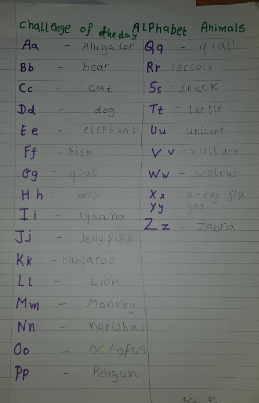 Challenge of the day Alphabet Animals
Aa - Alligator
Bb - bear
Cc - cat
Dd - dog
Ee - elephant
Ff - Fish
Gg - goat
Hh -
Ii - Iguana
Jj - Jellyfish
Kk - kangaroo
Ll - Lion
Mm - Monkey
Nn -
Oo - octopus
Pp - Penguin
Qq - quail
Rr raccoon
Ss - snack
Tt - turtle
Uu unicorn
Vv - vulture
Ww - walrus
Xx - x-ray
Yy yag
Zz - zabra